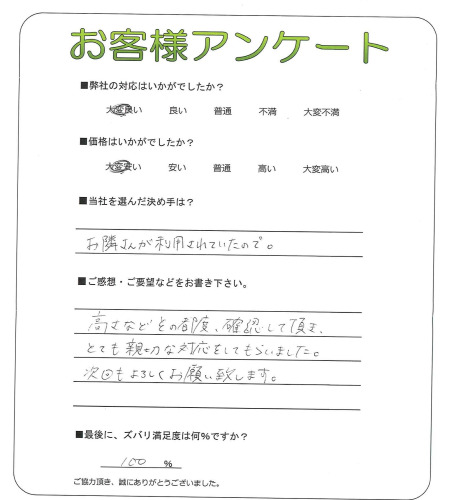 お客様アンケート
■弊社の対応はいかがでしたか？
大変良い 良い 普通 不満 大変不満
■価格はいかがでしたか？
大変安い 安い 普通 高い 大変高い
■当社を選んだ決め手は？
お隣さんが利用されていたので。
■ご感想・ご要望などをお書き下さい。
高さなどその都度、確認して頂き、
とても親切な対応をしてもらいました。
次回もよろしくお願い致します。
■最後に、ズバリ満足度は何%ですか？
100 %
ご協力頂き、誠にありがとうございました。